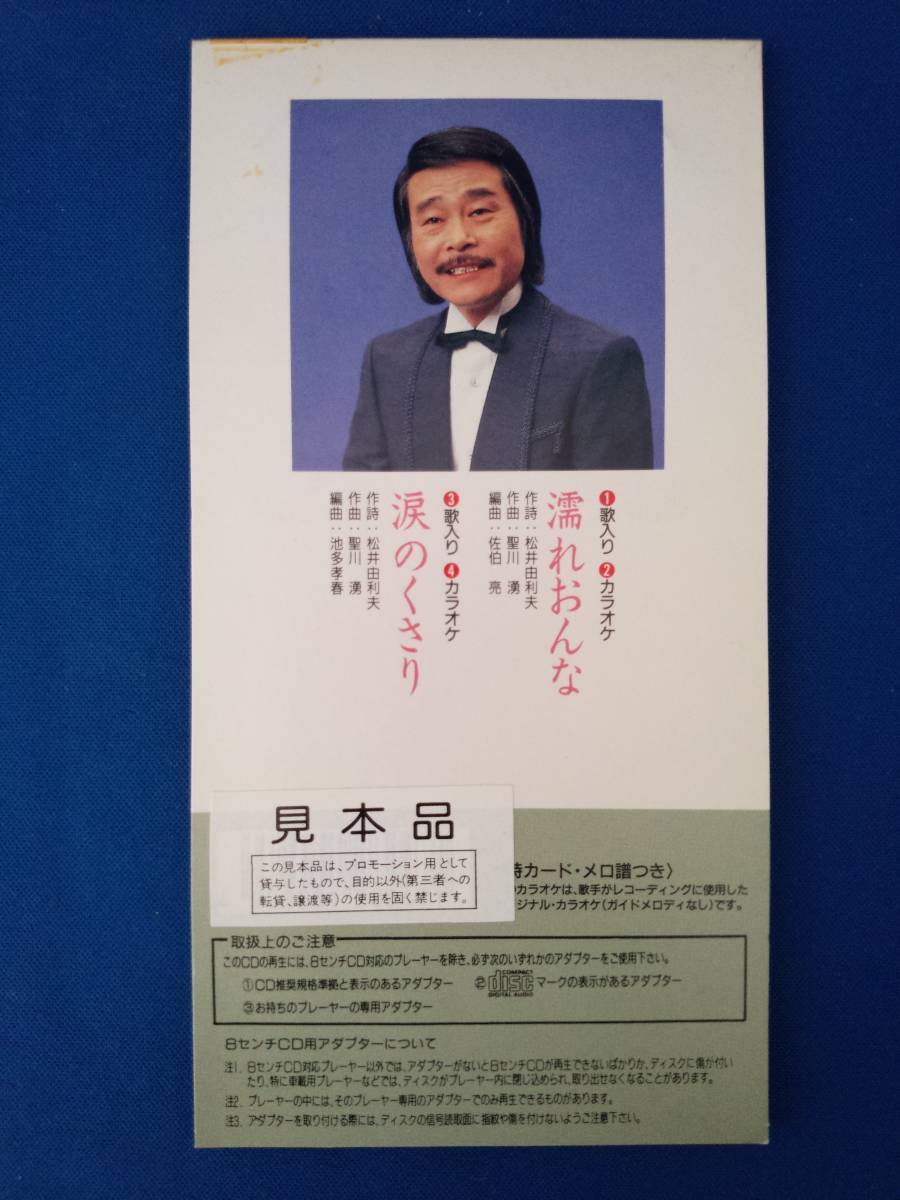 ❶歌入り ❷カラオケ
濡れおんな
作詩：松井由利夫
作曲：聖川 湧
編曲：佐伯 亮
❸歌入り ❹カラオケ
涙のくさり
作詩：松井由利夫
作曲：聖川 湧
編曲：池多孝春
見本品
この見本品は、プロモーション用として
貸与したもので、目的以外(第三者への
転貸、譲渡等)の使用を固く禁じます。
詩カード・メロ譜つき〉
カラオケは、歌手がレコーディングに使用した
ジナル・カラオケ(ガイドメロディなし)です。
取扱上のご注意
このCDの再生には、8センチCD対応のプレーヤーを除き、必ず次のいずれかのアダプターをご使用下さい。
①CD推奨規格準拠と表示のあるアダプター ②COMPACT disc DIGITAL AUDIO マークの表示があるアダプター
③お持ちのプレーヤーの専用アダプター
8センチCD用アダプターについて
注1．8センチCD対応プレーヤー以外では、アダプターがないと8センチCDが再生できないばかりか、ディスクに傷が付い
たり、特に車載用プレーヤーなどでは、ディスクがプレーヤー内に閉じ込められ、取り出せなくなることがあります。
注2．プレーヤーの中には、そのプレーヤー専用のアダプターでのみ再生できるものがあります。
注3．アダプターを取り付ける際には、ディスクの信号読取面に指紋や傷を付けないようご注意下さい。